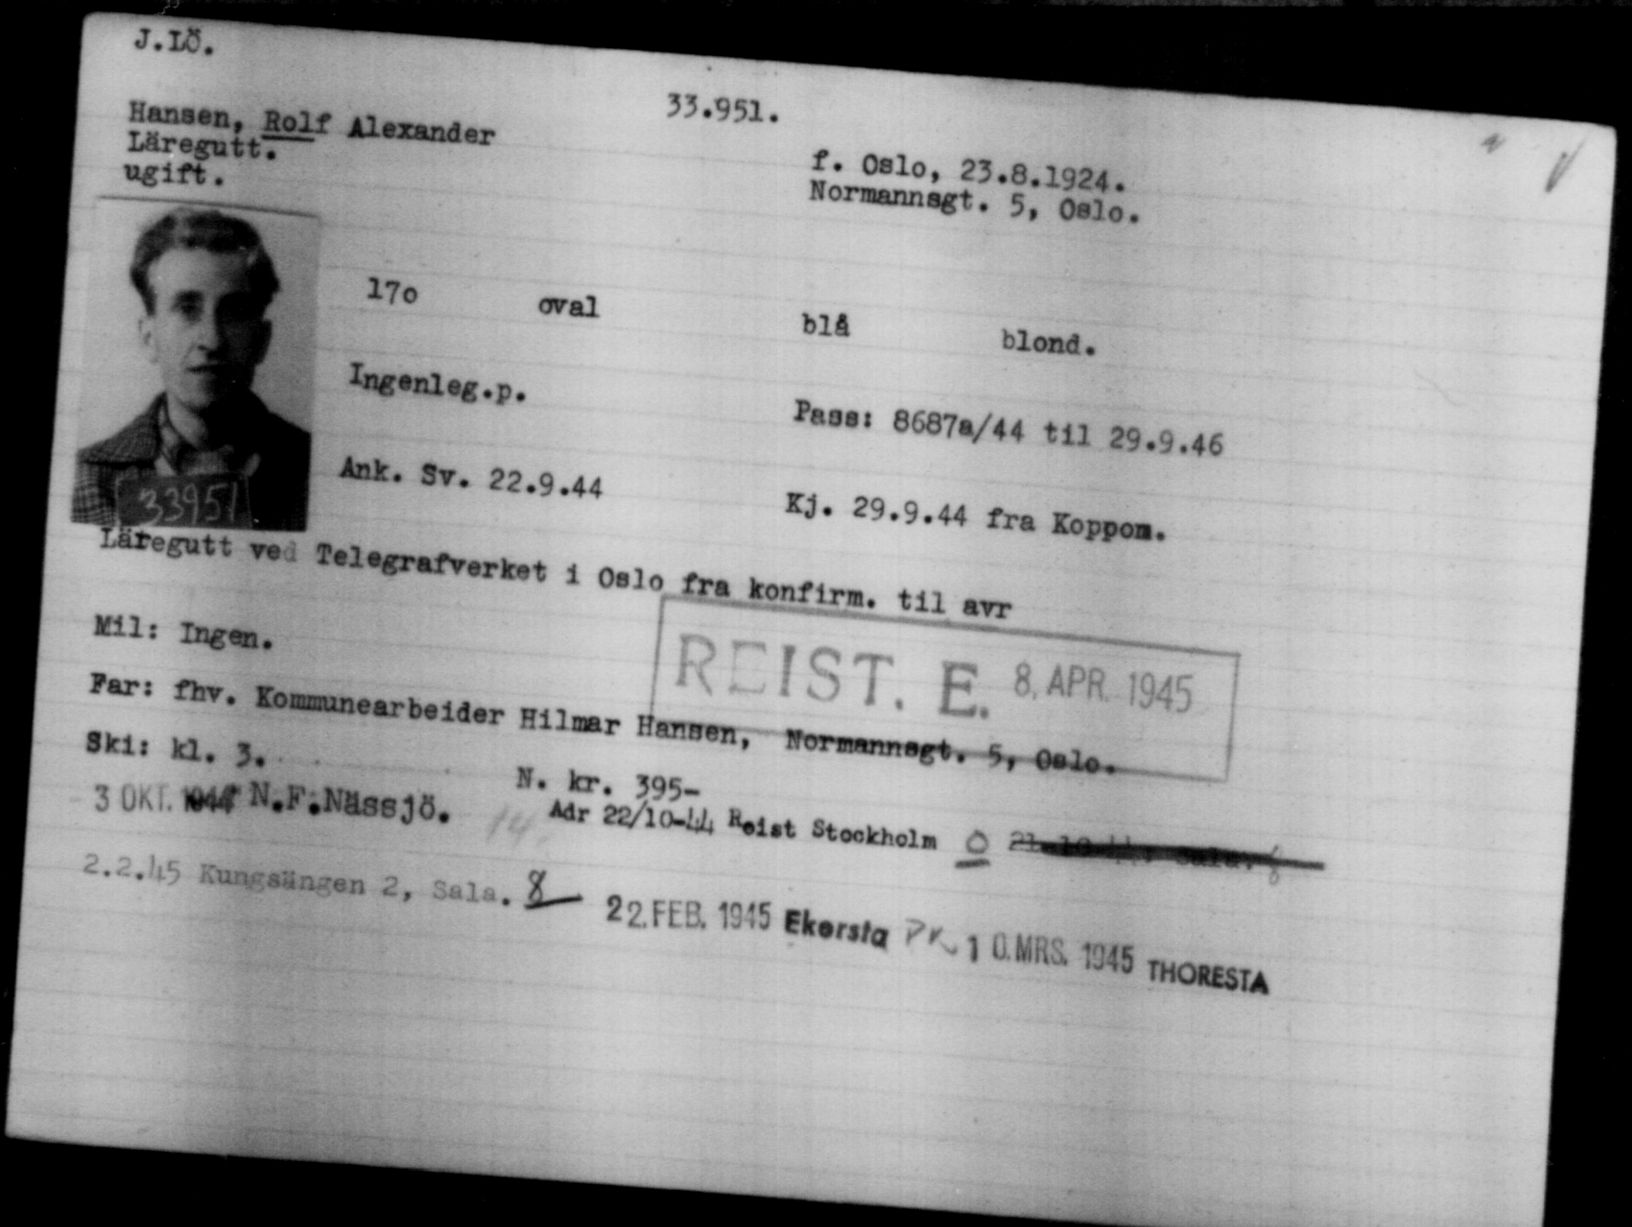 J.LÖ.
33.951.
Hansen, Rolf Alexander
Läregutt.
ugift.
f. Oslo, 23.8.1924.
Normannsgt. 5, Oslo.
17o oval blå blond.
Ingenleg.p.
Pass: 8687a/44 til 29.9.46
Ank. Sv. 22.9.44
Kj. 29.9.44 fra Koppom.
33951
Läregutt ved Telegrafverket i Oslo fra konfirm. til avr
Mil: Ingen.
REIST. E. 8. APR. 1945
Far: fhv. Kommunearbeider Hilmar Hansen, Normannsgt. 5, Oslo.
Ski: kl. 3.
N. kr. 395-
3 OKT. 1944 N.F.Nässjö.
14.
Adr 22/10-44 Reist Stockholm
2.2.45 Kungsängen 2, Sala. 8
22. FEB. 1945 Ekersta PK 10. MRS. 1945 THORESTA